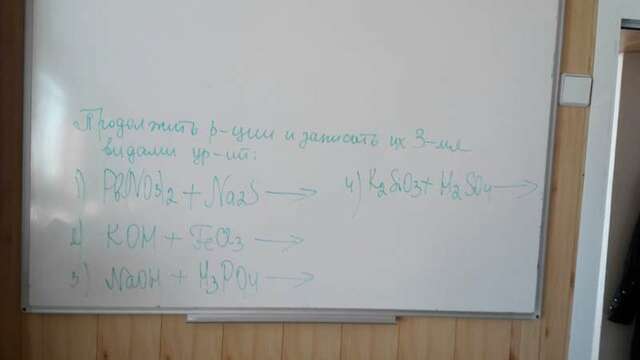 Продолжить р-ции и записать их 3-мя
видами ур-ий:
1) Pb(NO3)2 + Na2S →
2) KOH + FeCl3 →
3) NaOH + H3PO4 →
4) K2SiO3 + H2SO4 →